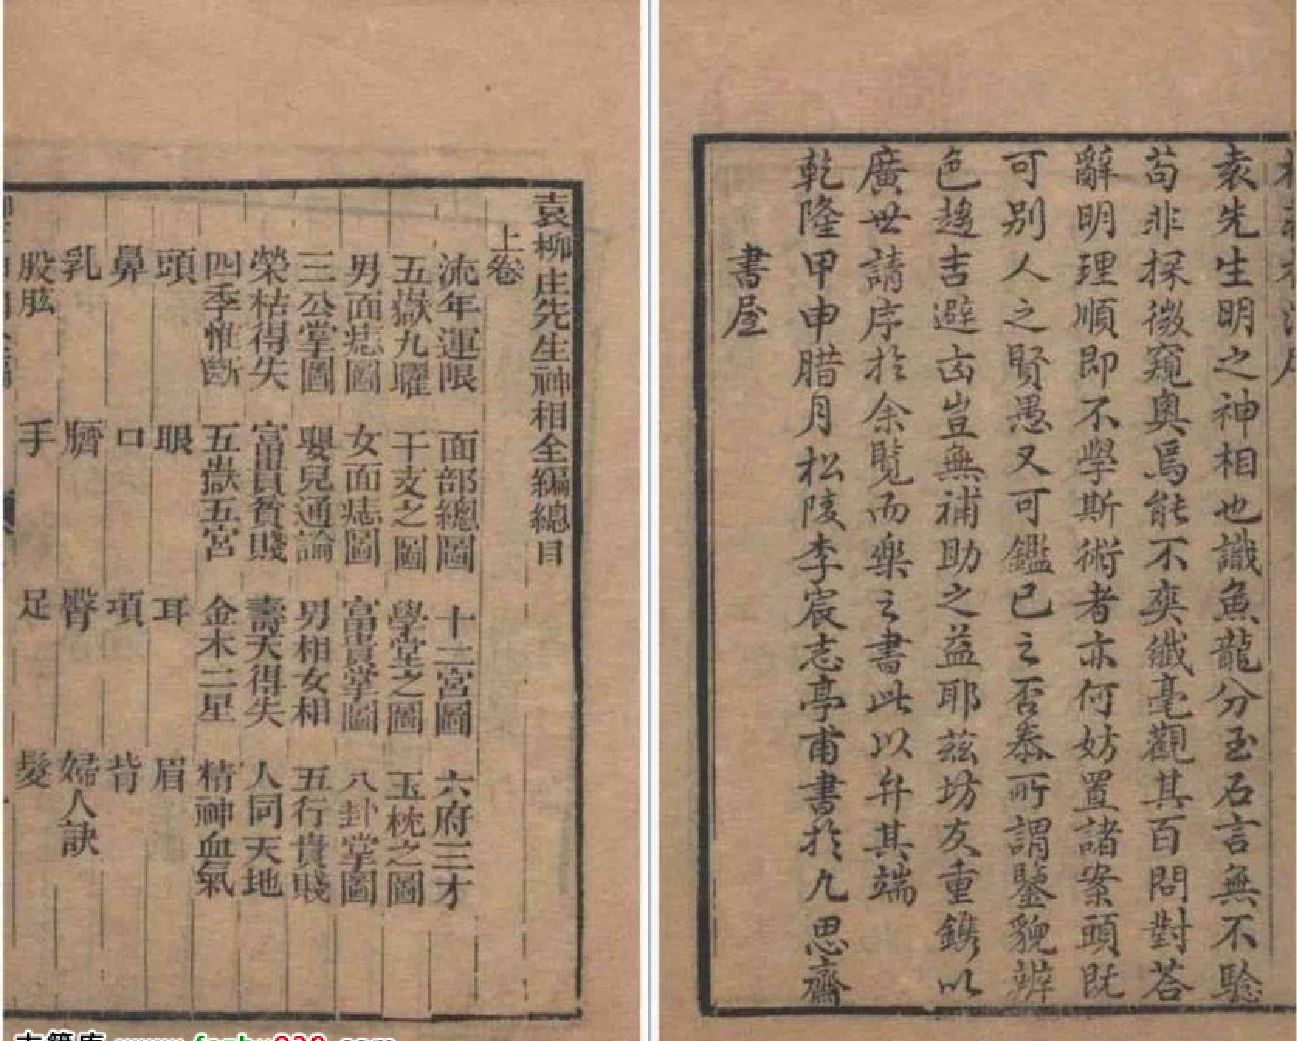 袁先生明之神相也識魚龍分玉石言無不騐
苟非探微窺奥焉能不爽纖毫觀其百問對荅
辭明理順即不學斯術者亦何妨置諸案頭既
可别人之賢愚又可鑑已之否泰所謂鑒貌辨
色趨吉避凶豈無補助之益耶兹坊友重鐫以
廣世請序於余覧而樂之書此以弁其端
乾隆甲申腊月松陵李宸志亭甫書於九思齋
書屋
袁柳庄先生神相全編總目
上卷
流年運限 面部總圖 十二宮圖 六府三才
五嶽九曜 干支之圖 學堂之圖 玉枕之圖
男面痣圖 女面痣圖 富貴掌圖 八卦掌圖
三公掌圖 嬰兒通論 男相女相 五行貴賤
榮枯得失 富貴貧賤 壽夭得失 人同天地
四季惟斷 五嶽五宮 金木二星 精神血氣
頭 眼 耳 眉
鼻 口 項 背
乳 臍 臀 婦人訣
股肱 手 足 髮